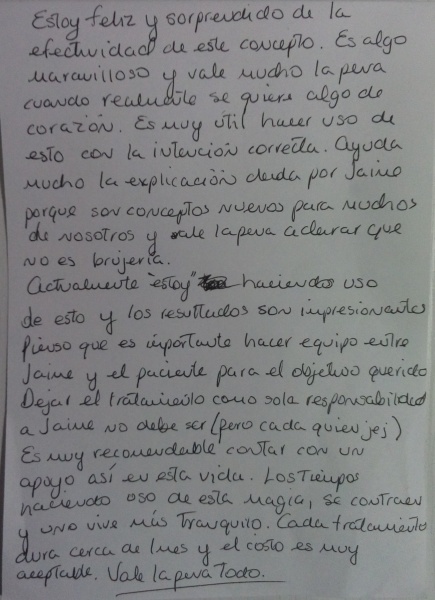 Estoy feliz y sorprendido de la
efectividad de este concepto. Es algo
maravilloso y vale mucho la pena
cuando realmente se quiere algo de
corazón. Es muy útil hacer uso de
esto con la intención correcta. Ayuda
mucho la explicación dada por Jaime
porque son conceptos nuevos para muchos
de nosotros y vale la pena aclarar que
no es brujería.
Actualmente "estoy" haciendo uso
de esto y los resultados son impresionantes
Pienso que es importante hacer equipo entre
Jaime y el paciente para el objetivo querido
Dejar el tratamiento como sola responsabilidad
a Jaime no debe ser (pero cada quien jej)
Es muy recomendable contar con un
apoyo así en esta vida. Los tiempos
haciendo uso de esta magia, se contraen
y uno vive más tranquilo. Cada tratamiento
dura cerca de 1 mes y el costo es muy
aceptable. Vale la pena todo.